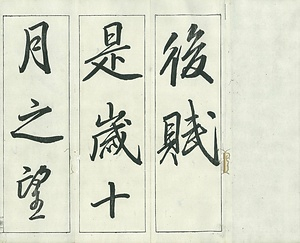 後賦
是歲十
月之望